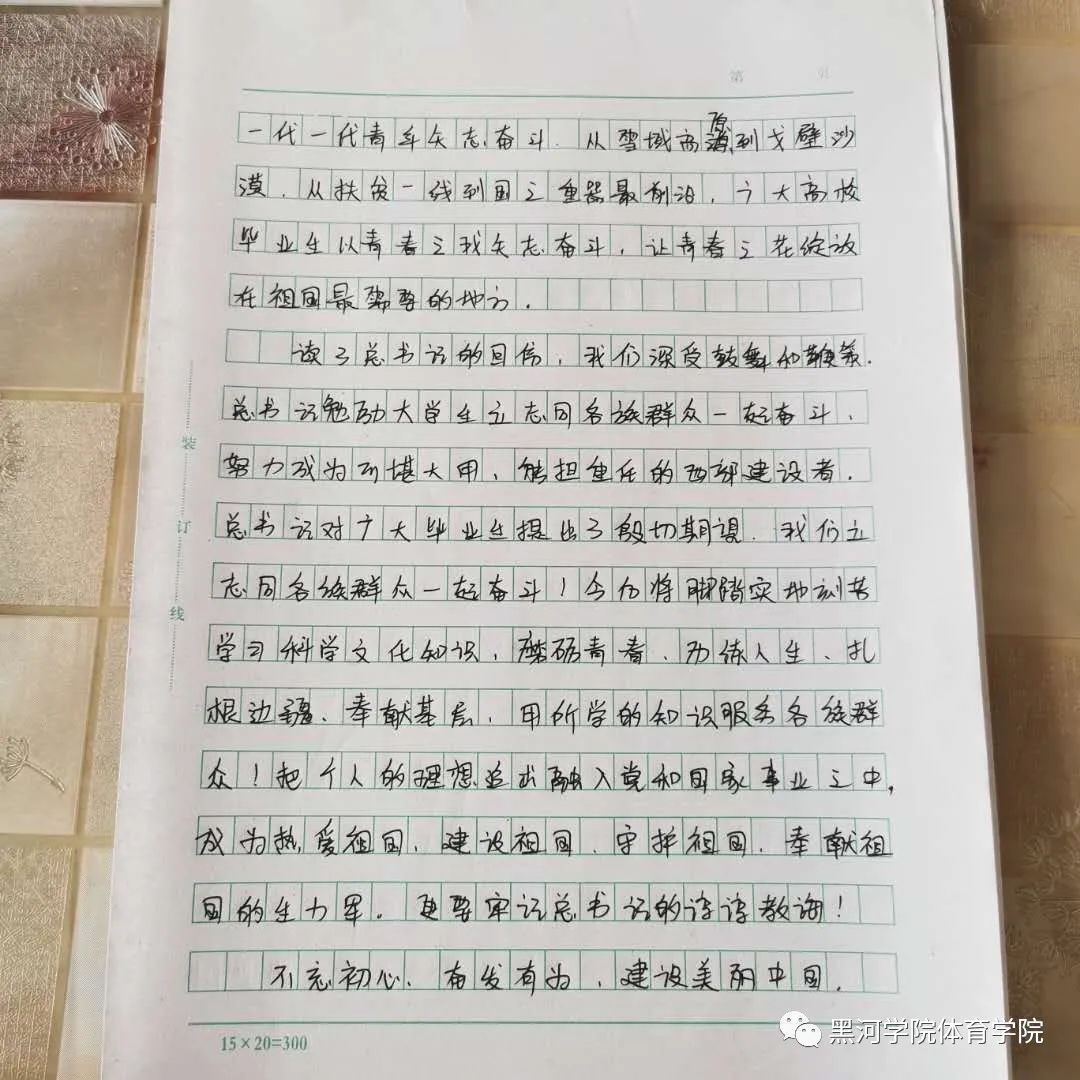 第 页
一代一代青年矢志奋斗.从雪域高原到戈壁沙
漠.从扶贫一线到国之重器最前沿,广大高校
毕业生以青春之我矢志奋斗,让青春之花绽放
在祖国最需要的地方.
读了总书记的回信,我们深受鼓舞和鞭策.
总书记勉励大学生立志同各族群众一起奋斗、
努力成为可堪大用、能担重任的西部建设者.
总书记对广大毕业生提出了殷切期望.我们立
志同各族群众一起奋斗!今后将脚踏实地刻苦
学习科学文化知识,磨砺青春.历练人生、扎
根边疆、奉献基层、用所学的知识服务各族群
众!把个人的理想追求融入党和国家事业之中,
成为热爱祖国、建设祖国、守护祖国、奉献祖
国的生力军。更要牢记总书记的谆谆教诲!
不忘初心、奋发有为,建设美丽中国.
15×20=300
装
订
线
黑河学院体育学院